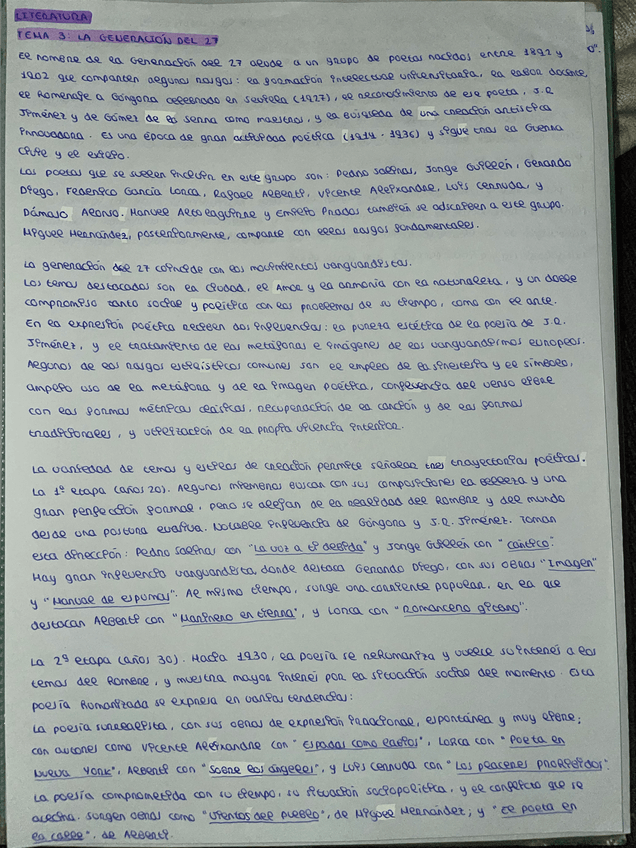 LITERATURA
TEMA 3: LA GENERACIÓN DEL 27
El nombre de la Generación del 27 alude a un grupo de poetas nacidos entre 1892 y
1902 que comparten algunos rasgos: la formación intelectual universitaria, la labor docente,
el homenaje a Góngora celebrado en Sevilla (1927), el reconocimiento de ese poeta, J.R.
Jiménez y de Gómez de la Serna como maestros, y la búsqueda de una creación artística
innovadora. Es una época de gran actividad poética (1914 - 1936) y sigue tras la Guerra
Civil y el exilio.
Los poetas que se suelen incluir en este grupo son: Pedro Salinas, Jorge Guillén, Gerardo
Diego, Federico García Lorca, Rafael Alberti, Vicente Aleixandre, Luis Cernuda, y
Dámaso Alonso. Manuel Altolaguirre y Emilio Prados también se adscriben a este grupo.
Miguel Hernández, posteriormente, comparte con ellos rasgos fundamentales.
La generación del 27 coincide con los movimientos vanguardistas.
Los temas destacados son la ciudad, el Amor y la armonía con la naturaleza, y un doble
compromiso tanto social y político con los problemas de su tiempo, como con el arte.
En la expresión poética reciben dos influencias: la pureza estética de la poesía de J.R.
Jiménez, y el tratamiento de las metáforas e imágenes de los vanguardismos europeos.
Algunos de los rasgos estilísticos comunes son el empleo de la sinestesia y el símbolo,
amplio uso de la metáfora y de la imagen poética, confluencia del verso libre
con las formas métricas clásicas, recuperación de la canción y de las formas
tradicionales, y utilización de la propia vivencia interior.
La variedad de temas y estilos de creación permite señalar tres trayectorias poéticas.
La 1ª etapa (años 20). Algunos miembros buscan con sus composiciones la belleza y una
gran perfección formal, pero se alejan de la realidad del hombre y del mundo
desde una postura evasiva. Notable influencia de Góngora y J.R. Jiménez. Toman
esta dirección: Pedro Salinas con "La voz a ti debida" y Jorge Guillén con "Cántico".
Hay gran influencia vanguardista, donde destaca Gerardo Diego, con sus obras "Imagen"
y "Manual de espumas". Al mismo tiempo, surge una corriente popular, en la que
destacan Alberti con "Marinero en tierra", y Lorca con "Romancero gitano".
La 2ª etapa (años 30). Hacia 1930, la poesía se rehumaniza y vuelve su interés a los
temas del hombre, y muestra mayor interés por la situación social del momento. Esta
poesía humanizada se expresa en varias tendencias:
La poesía surrealista, con sus obras de expresión irracional, espontánea y muy libre;
con autores como Vicente Aleixandre con "Espadas como labios", Lorca con "Poeta en
Nueva York", Alberti con "Sobre los ángeles", y Luis Cernuda con "Los placeres prohibidos".
La poesía comprometida con su tiempo, su situación sociopolítica, y el conflicto que se
acecha. Surgen obras como "Vientos del pueblo", de Miguel Hernández; y "El poeta en
la calle", de Alberti.